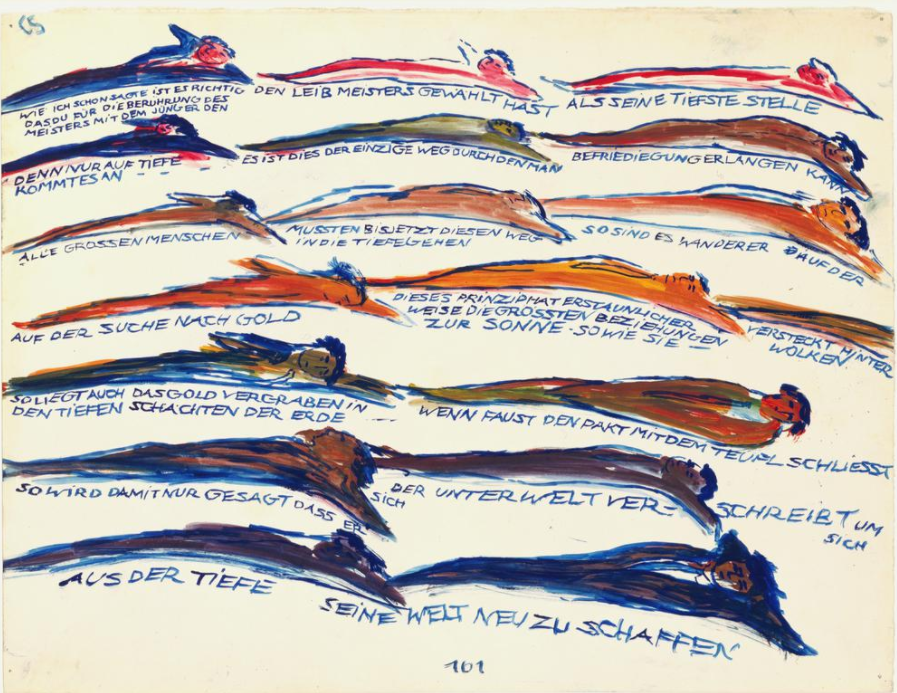 WIE ICH SCHON SAGTE IST ES RICHTIG
DASDU FÜR DIE BERÜHRUNG DES
MEISTERS MIT DEM JÜNGER DEN
DEN LEIB MEISTERS GEWÄHLT HAST
ALS SEINE TIEFSTE STELLE
DENN NUR AUF TIEFE
KOMMTES AN - - - - - -
ES IST DIES DER EINZIGE WEG DURCH DEN MAN
BEFRIEDIEGUNG ERLANGEN KANN
ALLE GROSSEN MENSCHEN
MUSSTEN BIS JETZT DIESEN WEG
IN DIE TIEFE GEHEN
SO SIND ES WANDERER
AUF DER
AUF DER SUCHE NACH GOLD
DIESES PRINZIP HAT ERSTAUNLICHER
WEISE DIE GRÖSSTEN BEZIEHUNGEN
ZUR SONNE - SO WIE SIE —
VERSTECKT HINTER
WOLKEN
SO LIEGT AUCH DAS GOLD VERGRABEN IN
DEN TIEFEN SCHÄCHTEN DER ERDE - - -
WENN FAUST DEN PAKT MIT DEM TEUFL SCHLIESST
SO WIRD DAMIT NUR GESAGT DASS ER SICH
DER UNTERWELT VER-
SCHREIBT UM
SICH
AUS DER TIEFE
SEINE WELT NEU ZU SCHAFFEN
101